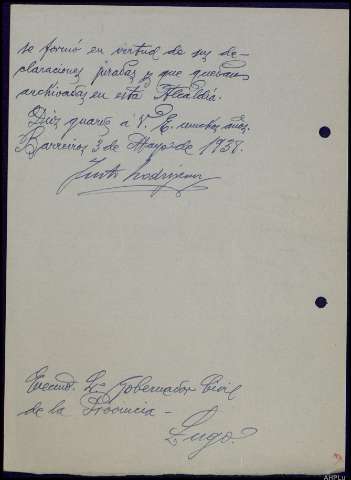 se formó en virtud de sus de-
claraciones juradas y que quedan
archivadas en esta Alcaldía.
Dios guarde à V. E. muchos años.
Barreiros 3 de Mayo de 1937.
Justo Rodríguez
Excmo. Sr. Gobernador Civil
de la Provincia -
Lugo.
AHPLu